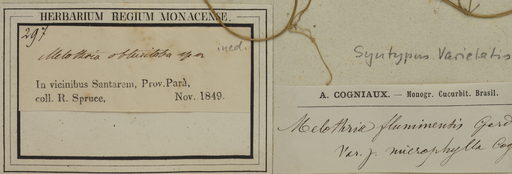 HERBARIUM REGIUM MONACENSE.
297
Melothria
ined.
In vicinibus Santarem, Prov. Parà,
coll. R. Spruce, Nov. 1849.
Syntypus Varietatis
A. COGNIAUX. — Monogr. Cucurbit. Brasil.
Melothria fluminensis Gard
Var. γ. microphylla Cog